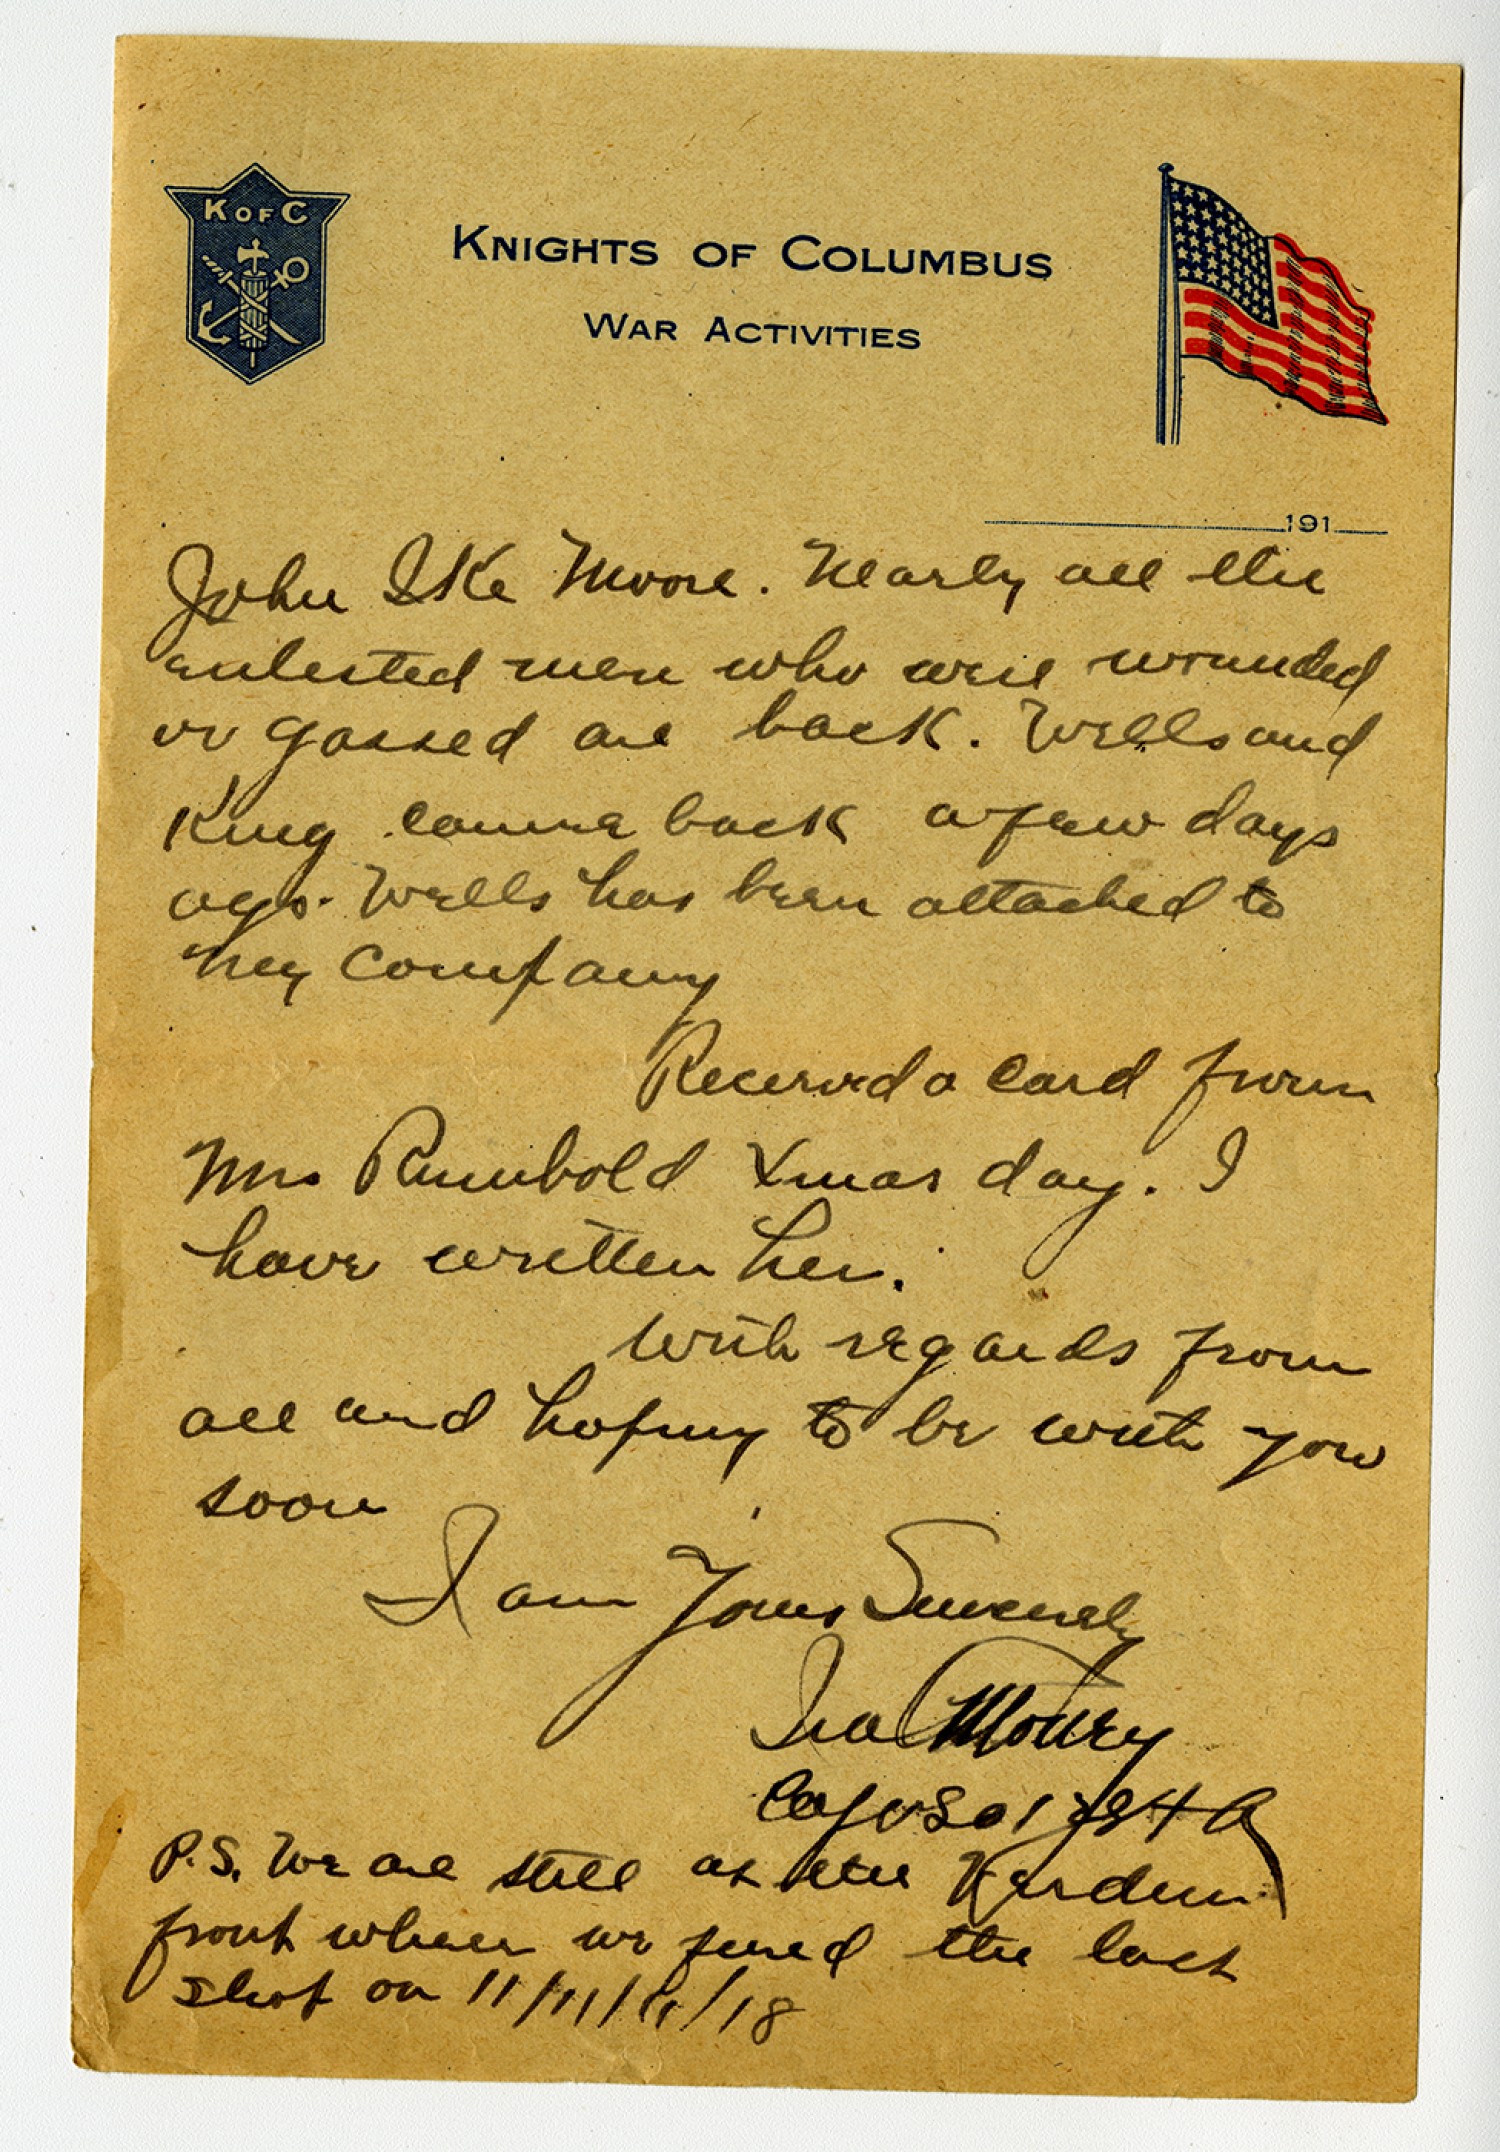 K OF C
KNIGHTS OF COLUMBUS
WAR ACTIVITIES
191
John Ike Moore. Nearly all the
enlested men who were wounded
or gassed are back. Wells and
King came back a few days
ago. Wells has been attached to
my company
Received a card from
Mrs Rumbold Xmas day. I
have written her.
With regards from
all and hoping to be with you
soon
I am Yours Sincerely
Ira Mowry
P.S. We are still at the Verdun
front where we fired the last
shot on 11/11/11/18